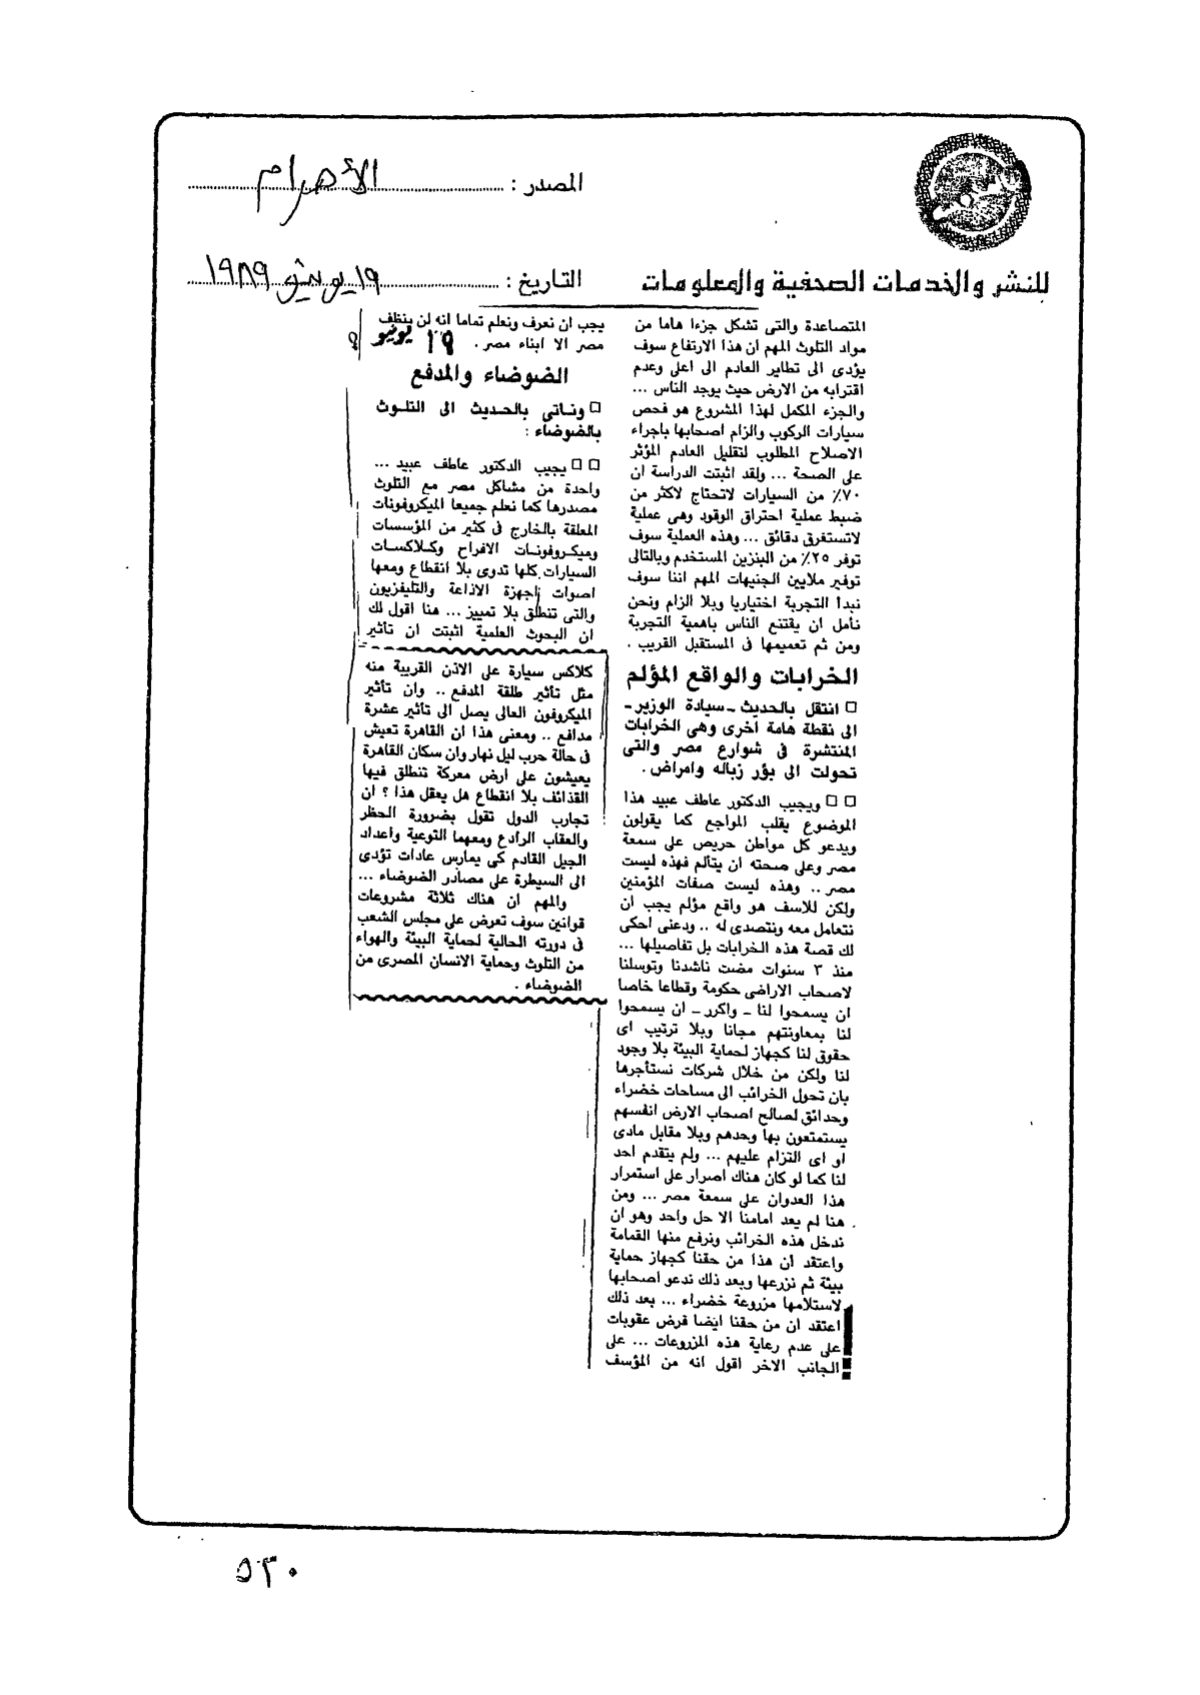 المصدر : الأهرام
للنشر والخدمات الصحفية والمعلومات
التاريخ : ١٩ يونيو ١٩٨٩
المتصاعدة والتى تشكل جزءا هاما من
مواد التلوث المهم ان هذا الارتفاع سوف
يؤدى الى تطاير العادم الى اعلى وعدم
اقترابه من الارض حيث يوجد الناس ...
والجزء المكمل لهذا المشروع هو فحص
سيارات الركوب والزام اصحابها باجراء
الاصلاح المطلوب لتقليل العادم المؤثر
على الصحة ... ولقد اثبتت الدراسة ان
٧٠٪ من السيارات لاتحتاج لاكثر من
ضبط عملية احتراق الوقود وهى عملية
لاتستغرق دقائق ... وهذه العملية سوف
توفر ٢٥٪ من البنزين المستخدم وبالتالى
توفير ملايين الجنيهات المهم اننا سوف
نبدأ التجربة اختياريا وبلا الزام ونحن
نأمل ان يقتنع الناس باهمية التجربة
ومن ثم تعميمها فى المستقبل القريب .
الخرابات والواقع المؤلم
□ انتقل بالحديث ـ سيادة الوزير ـ
الى نقطة هامة اخرى وهى الخرابات
المنتشرة فى شوارع مصر والتى
تحولت الى بؤر زباله وامراض .
□ □ ويجيب الدكتور عاطف عبيد هذا
الموضوع يقلب المواجع كما يقولون
ويدعو كل مواطن حريص على سمعة
مصر وعلى صحته ان يتألم فهذه ليست
مصر .. وهذه ليست صفات المؤمنين
ولكن للاسف هو واقع مؤلم يجب ان
نتعامل معه ونتصدى له .. ودعنى احكى
لك قصة هذه الخرابات بل تفاصيلها ...
منذ ٣ سنوات مضت ناشدنا وتوسلنا
لاصحاب الاراضى حكومة وقطاعا خاصا
ان يسمحوا لنا ـ واكرر ـ ان يسمحوا
لنا بمعاونتهم مجانا وبلا ترتيب اى
حقوق لنا كجهاز لحماية البيئة بلا وجود
لنا ولكن من خلال شركات نستأجرها
بان تحول الخرائب الى مساحات خضراء
وحدائق لصالح اصحاب الارض انفسهم
يستمتعون بها وحدهم وبلا مقابل مادى
او اى التزام عليهم ... ولم يتقدم احد
لنا كما لو كان هناك اصرار على استمرار
هذا العدوان على سمعة مصر ... ومن
هنا لم يعد امامنا الا حل واحد وهو ان
ندخل هذه الخرائب ونرفع منها القمامة
واعتقد ان هذا من حقنا كجهاز حماية
بيئة ثم نزرعها وبعد ذلك ندعو اصحابها
لاستلامها مزروعة خضراء ... بعد ذلك
اعتقد ان من حقنا ايضا فرض عقوبات
على عدم رعاية هذه المزروعات ... على
الجانب الاخر اقول انه من المؤسف
يجب ان نعرف ونعلم تماما انه لن ينظف
مصر الا ابناء مصر . ١٩ يونيو
الضوضاء والمدفع
□ ونأتى بالحديث الى التلوث
بالضوضاء :
□ □ يجيب الدكتور عاطف عبيد ...
واحدة من مشاكل مصر مع التلوث
مصدرها كما نعلم جميعا الميكروفونات
المعلقة بالخارج فى كثير من المؤسسات
وميكروفونات الافراح وكلاكسات
السيارات كلها تدوى بلا انقطاع ومعها
اصوات اجهزة الاذاعة والتليفزيون
والتى تنطلق بلا تمييز ... هنا اقول لك
ان البحوث العلمية اثبتت ان تأثير
كلاكس سيارة على الاذن القريبة منه
مثل تأثير طلقة المدفع .. وان تأثير
الميكروفون العالى يصل الى تأثير عشرة
مدافع .. ومعنى هذا ان القاهرة تعيش
فى حالة حرب ليل نهار وان سكان القاهرة
يعيشون على ارض معركة تنطلق فيها
القذائف بلا انقطاع هل يعقل هذا ؟ ان
تجارب الدول تقول بضرورة الحظر
والعقاب الرادع ومعهما التوعية واعداد
الجيل القادم كى يمارس عادات تؤدى
الى السيطرة على مصادر الضوضاء ...
والمهم ان هناك ثلاثة مشروعات
قوانين سوف تعرض على مجلس الشعب
فى دورته الحالية لحماية البيئة والهواء
من التلوث وحماية الانسان المصرى من
الضوضاء .
٥٣٠